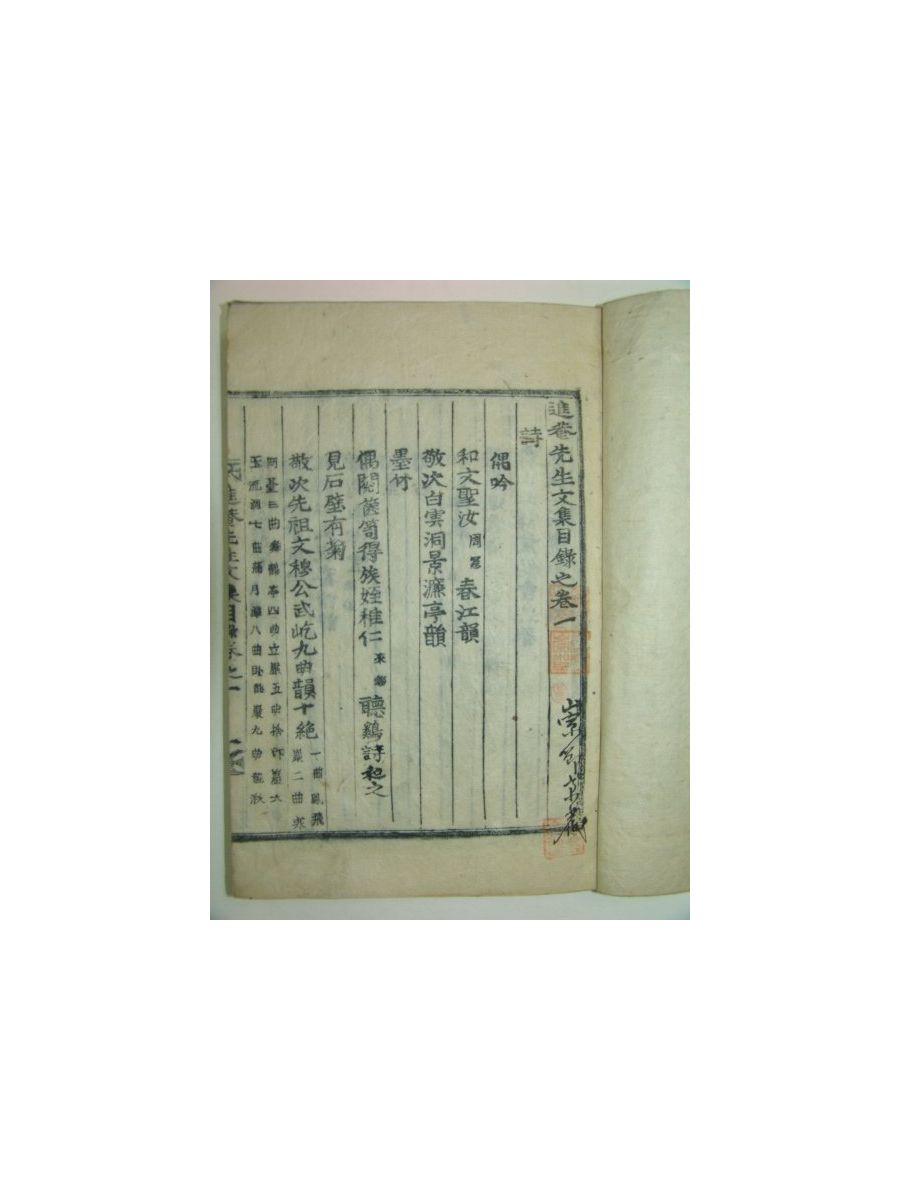 進菴先生文集目錄之卷一
詩
偶吟
和文聖汝周冕春江韻
敬次白雲洞景濂亭韻
墨竹
偶閱篋笥得族姪稚仁來錫聽鷄詩和之
見石壁有菊
敬次先祖文穆公武屹九曲韻十絶一曲鳳飛巖二曲寒
岡臺三曲舞鶴亭四曲立巖五曲捨印巖六
玉流洞七曲滿月潭八曲臥龍巖九曲龍湫
進菴先生文集目錄卷之一